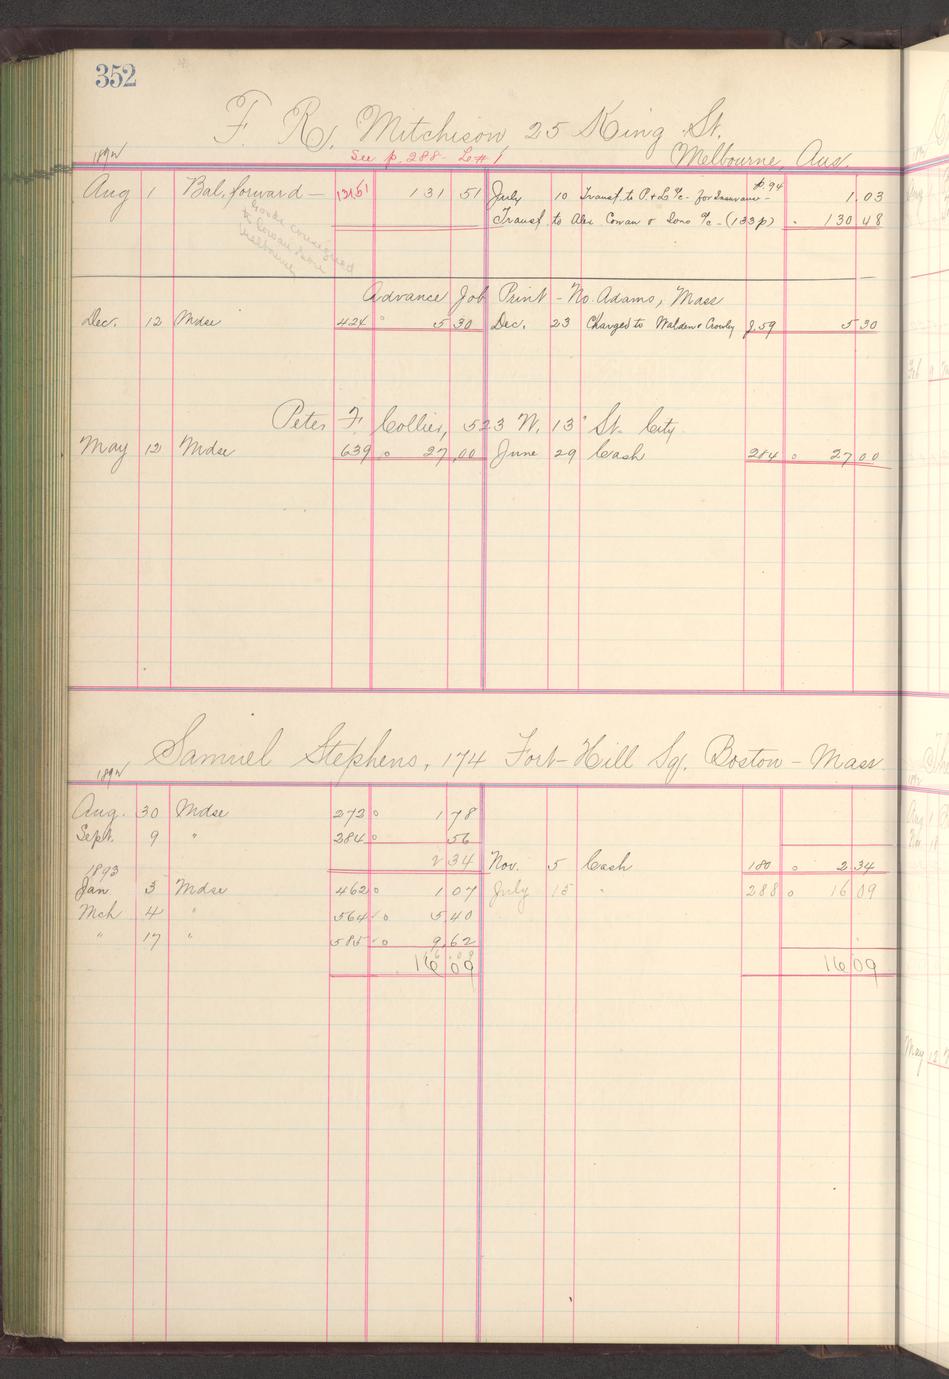 352
F. R. Mitchison, 25 King St.
Melbourne, Aus.
1892 See p. 288 - L #1
Aug 1 Bal. forward — 131 51 131 51 July 10 Transf. to P. & L. a/c - for Insurance - p. 94 1.03
Transf. to Alex Cowan & Sons a/c - (133 p) " 130 48
Goods consigned
to Cowan & Sons
Melbourne
Advance Job Print - No. Adams, Mass
Dec. 12 Mdse 424 " 5 30 Dec. 23 Charged to Walden & Crowley J. 59 5 30
Peter F. Collier, 523 W. 13" St. City
May 12 Mdse 639 o 27,00 June 29 Cash 284 o 27 00
Samuel Stephens, 174 Fort-Hill Sq. Boston - Mass.
1892
Aug. 30 Mdse 272 o 1 78
Sept. 9 " 284 o 56
2 34 Nov. 5 Cash 180 o 2 34
1893
Jan 3 Mdse 462 o 1 07 July 15 " 288 o 16 09
Mch 4 " 564 o 5 40
" 17 " 585 o 9,62
16 09 16 09